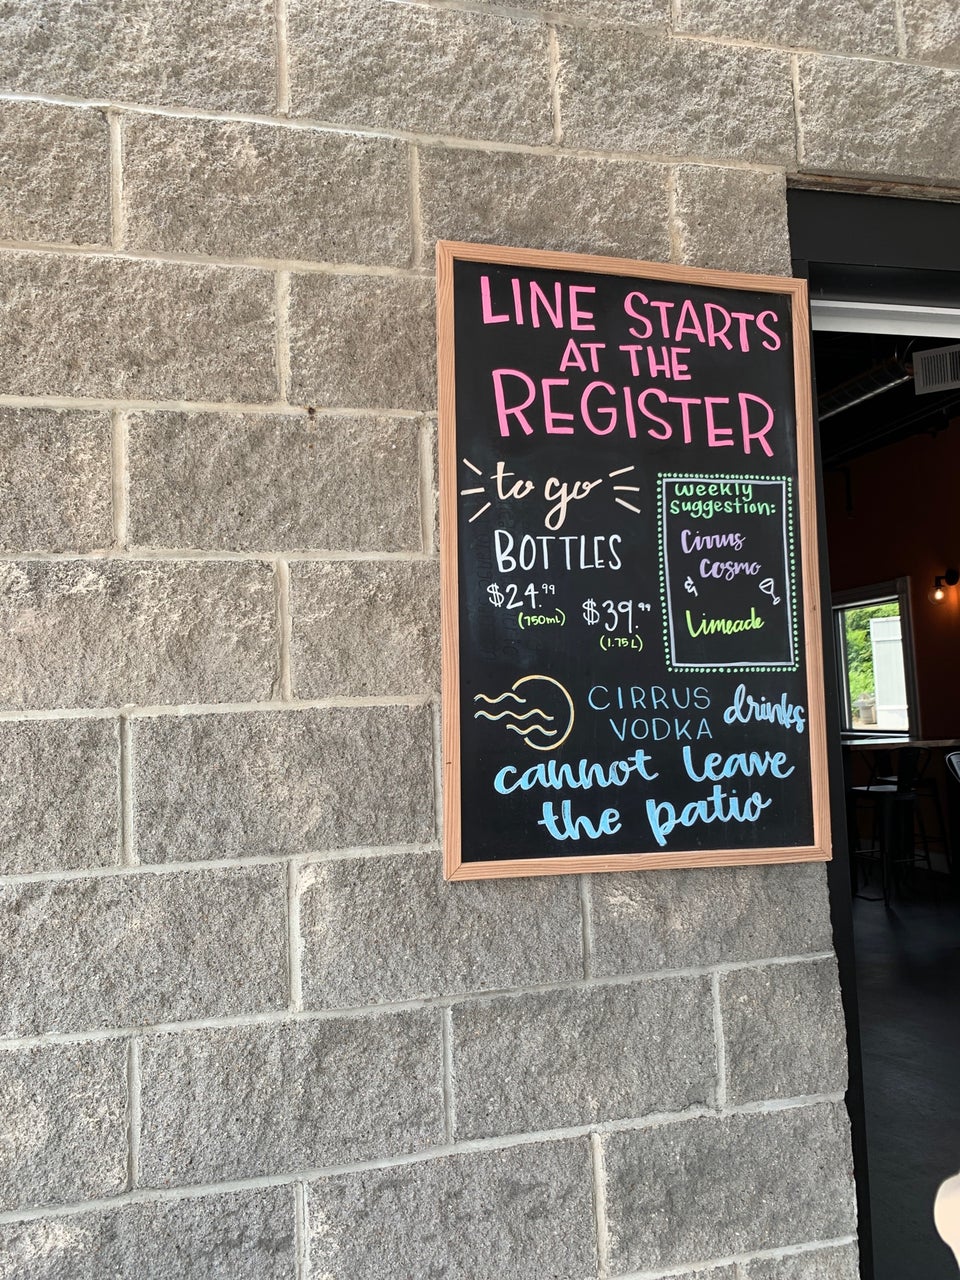 LINE STARTS
AT THE
REGISTER
to go
BOTTLES
$24.99
(750mL)
$39.99
(1.75L)
weekly
suggestion:
Cirrus
Cosmo
&
Limeade
CIRRUS
VODKA drinks
cannot leave
the patio